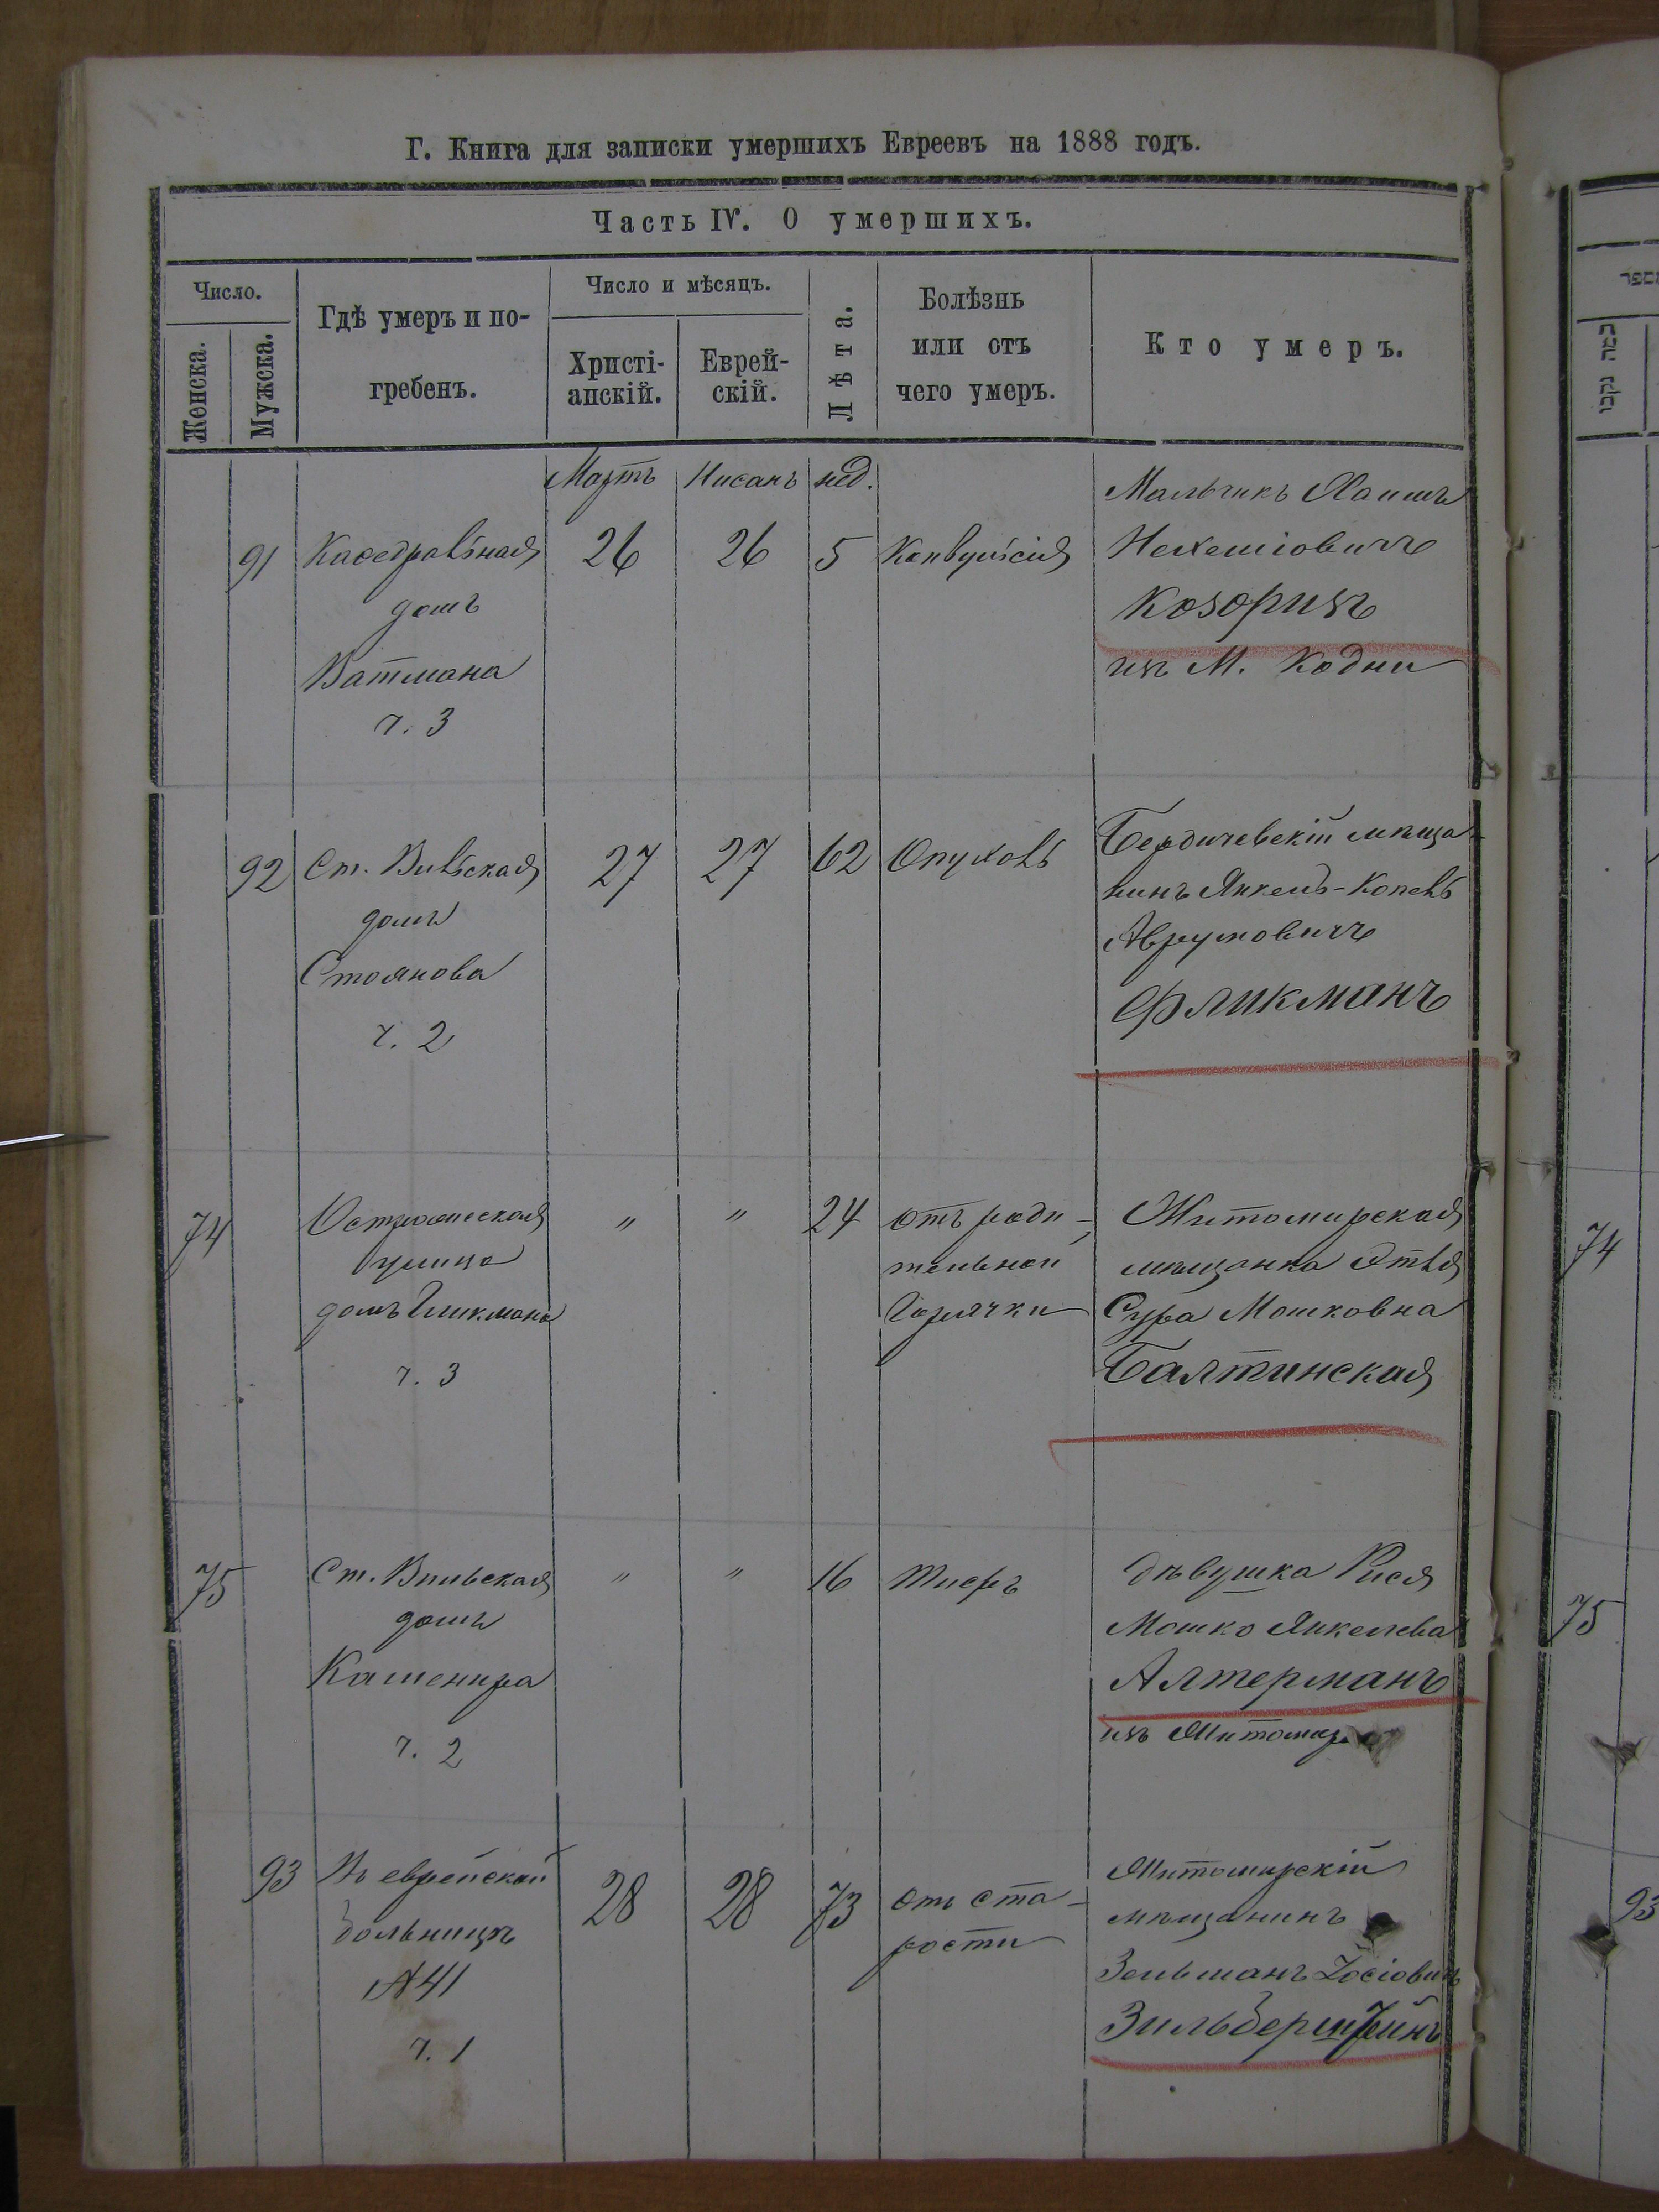 Г. Книга для записки умершихъ Евреевъ на 1888 годъ.
Часть IV. О умершихъ.
Число.
Женска.
Мужска.
Гдѣ умеръ и по-
гребенъ.
Число и мѣсяцъ.
Христі-
анскій.
Еврей-
скій.
Лѣта.
Болѣзнь
или отъ
чего умеръ.
Кто умеръ.
Мартъ Нисанъ нед.
91 Каѳедральная 26 26 5 Конвульсія
домъ
Ватмана
ч. 3
Мальчикъ Хаимъ
Нехеміовичъ
Козоризъ
изъ М. Кодни
92 Ст. Вильская 27 27 62 Опухоль
домъ
Стоянова
ч. 2
Бердичевскій мѣща-
нинъ Янкель-Копель
Аврумовичъ
Фликманъ
74
улица
домъ Гликмана
ч. 3
" " 24 отъ роди-
тельной
Горячки
Житомирская
мѣщанка Этля
Сура Мошковна
Балтинская
75 Ст. Вильская " " 16 Тифъ
домъ
Кашенира
ч. 2
дѣвушка Рися
Мошко Янкелева
Алтерманъ
изъ Житомира
93 Въ еврейской 28 28 73 отъ ста-
рости
больницѣ
№41
ч. 1
Житомирскій
мѣщанинъ
Зельманъ Іосіовичъ
Зильберштейнъ
74
75
93